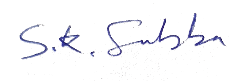 S.K. Subba